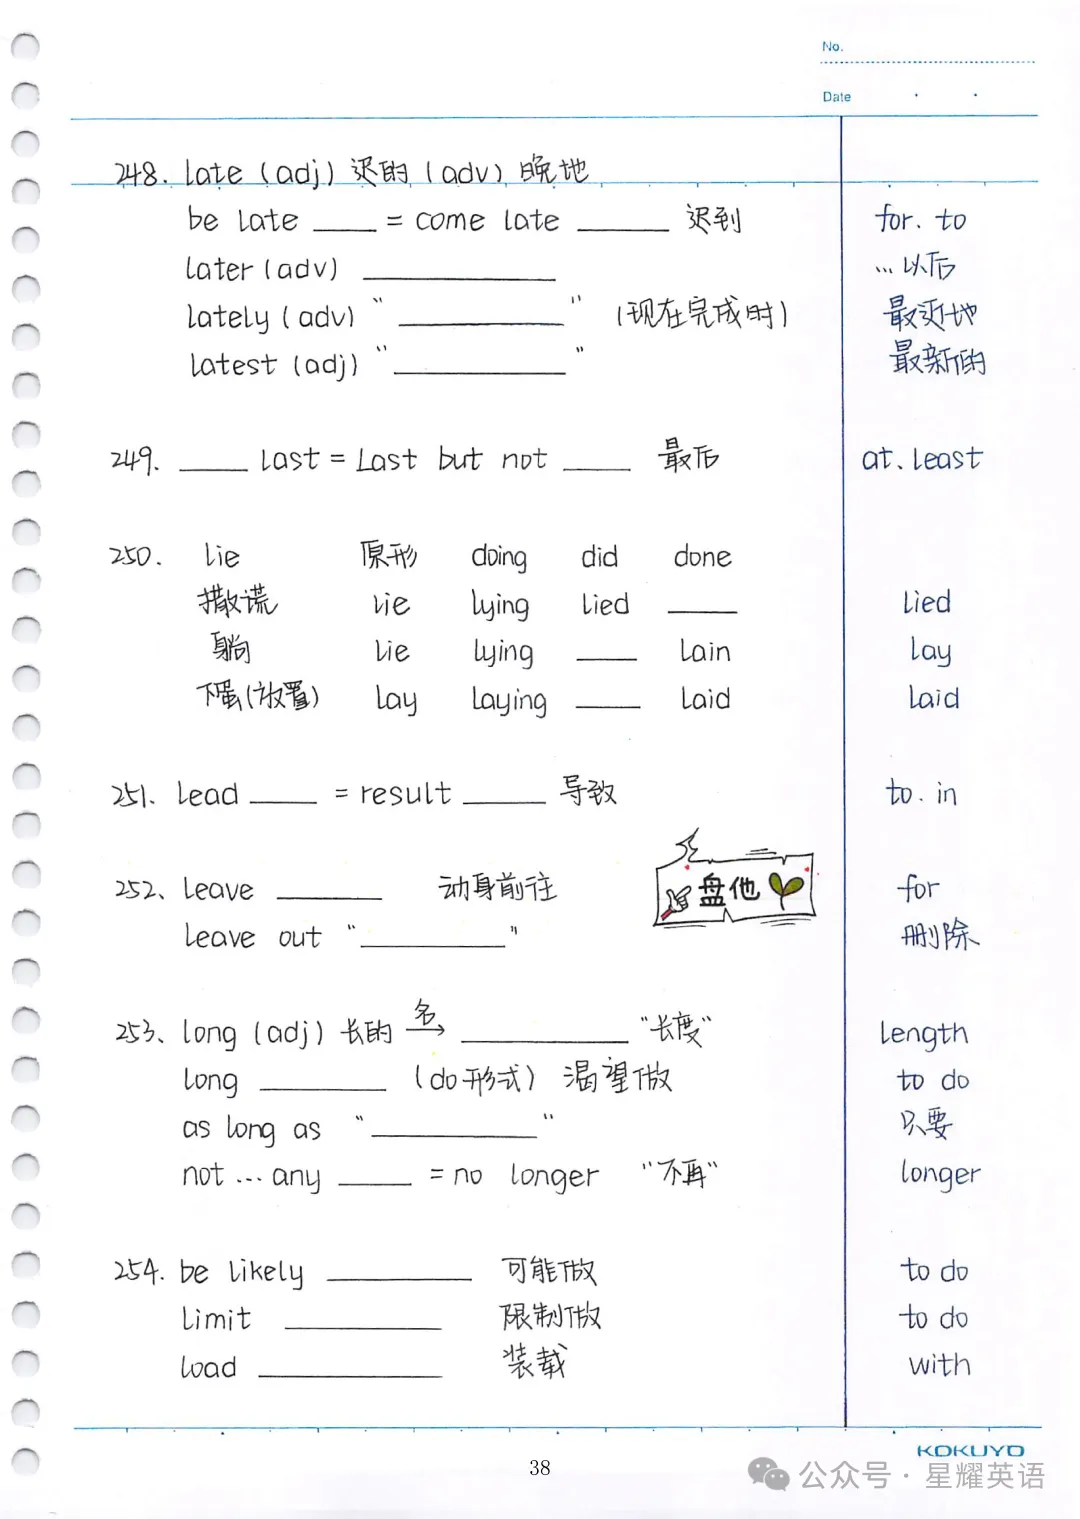 No.
Date
248. late (adj) 迟的 (adv) 晚地
be late ____ = come late ______ 迟到 for. to
later (adv) ____________ ...以后
lately (adv) “__________” (现在完成时) 最近地
latest (adj) “__________” 最新的
249. ____ last = Last but not ____ 最后 at. least
250. lie 原形 doing did done
撒谎 lie lying lied ____ lied
躺 lie lying ____ lain lay
下蛋(放置) lay laying ____ laid laid
251. lead ____ = result _____ 导致 to. in
252、leave ______ 动身前往 for
盘他
leave out “_________” 删除
253、long (adj) 长的 名→ __________ “长度” length
long ________ (do形式) 渴望做 to do
as long as “__________” 只要
not ... any ____ = no longer “不再” longer
254. be likely _________ 可能做 to do
limit _________ 限制做 to do
load ___________ 装载 with
KOKUYO
38
公众号 · 星耀英语